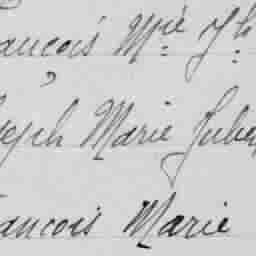 ancois Mie Jh
seph Marie Jube
ancois Marie